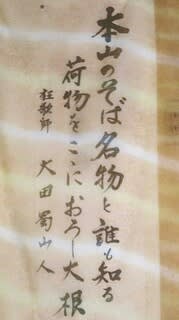 本山のそば名物と誰も知る
荷物をここにおろし大根
狂歌師 大田蜀山人